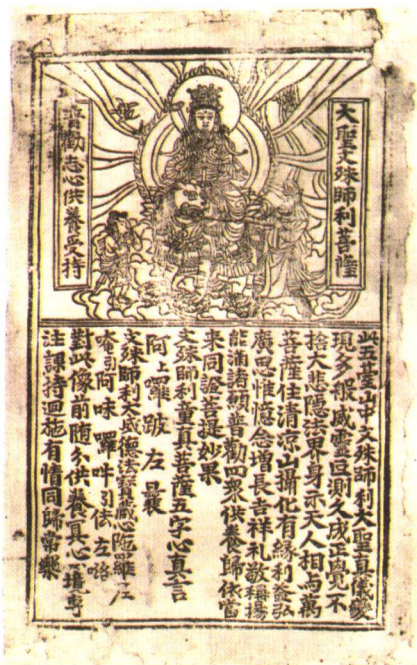 大聖文殊師利菩薩
普勸志心供養受持
此五臺山中文殊師利大聖真儀變
現多般威靈叵測久成正覺不
捨大悲隱法界身示天人相与萬
菩薩住清涼山攝化有緣利益弘
廣思惟憶念增長吉祥礼敬稱揚
能滿諸願普勸四衆供養歸依當
來同證菩提妙果
文殊師利童真菩薩五字心真言
阿上囉跛左曩
文殊師利大威德法寶藏心陁羅尼
唵引阿味囉吽引佉左咯
對此像前隨分供養冥心一境專
注課持迴施有情同歸常樂